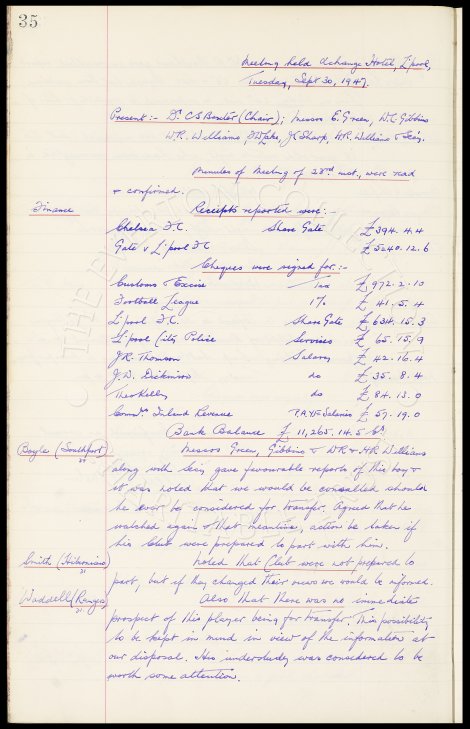 35
Meeting held Exchange Hotel, L'pool,
Tuesday, Sept 30, 1947.
Present:- Dr. C S Baxter (Chair); Messrs E. Green, W.C. Gibbins
W.R. Williams, J. Sharp, H.R. Williams & Secy.
Minutes of Meeting of 23rd inst., were read
& confirmed.
Finance
Receipts reported were:-
Chelsea F.C. Share Gate £394.4.4
Gate v L'pool F.C £5240.12.6
Cheques were signed for:-
Customs & Excise Tax £972.2.10
Football League 1% £41.5.4
L'pool F.C. Share Gate £634.15.3
L'pool City Police Services £65.15.9
J.R. Thomson Salary £42.16.4
J.D. Dickinson do £35.8.4
Theo Kelly do £84.13.0
Commrs Inland Revenue P.A.Y.E. Salaries £59.19.0
Bank Balance £11,265.14.5
Boyle (Southport)
Messrs Green, Gibbins & W.R & H.R. Williams
along with Secy gave favourable reports of this boy &
it was noted that we would be consulted should
he ever be considered for transfer. Agreed that he
watched again & that meantime, action be taken if
his Club were prepared to part with him.
Smith (Hibernians)
Noted that Club were not prepared to
part, but if they changed their views we would be informed.
Waddell (Rangers)
Also that there was no immediate
prospect of this player being for transfer. This possibility
to be kept in mind in view of the information at
our disposal. His understudy was considered to be
worth some attention.
THE EVERTON COLLECTION